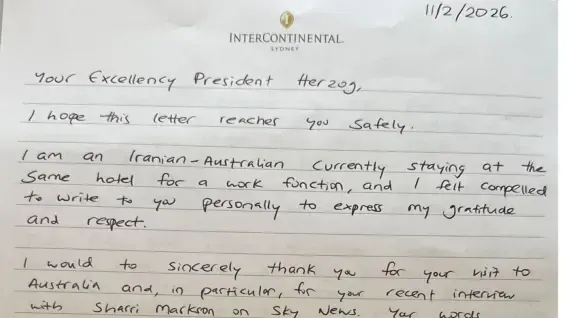 11/2/2026.
INTERCONTINENTAL.
SYDNEY
Your Excellency President Herzog,
I hope this letter reaches you safely.
I am an Iranian-Australian currently staying at the
same hotel for a work function, and I felt compelled
to write to you personally to express my gratitude
and respect.
I would to sincerely thank you for your visit to
Australia and, in particular, for your recent interview
with Sharri Markson on Sky News. Your words